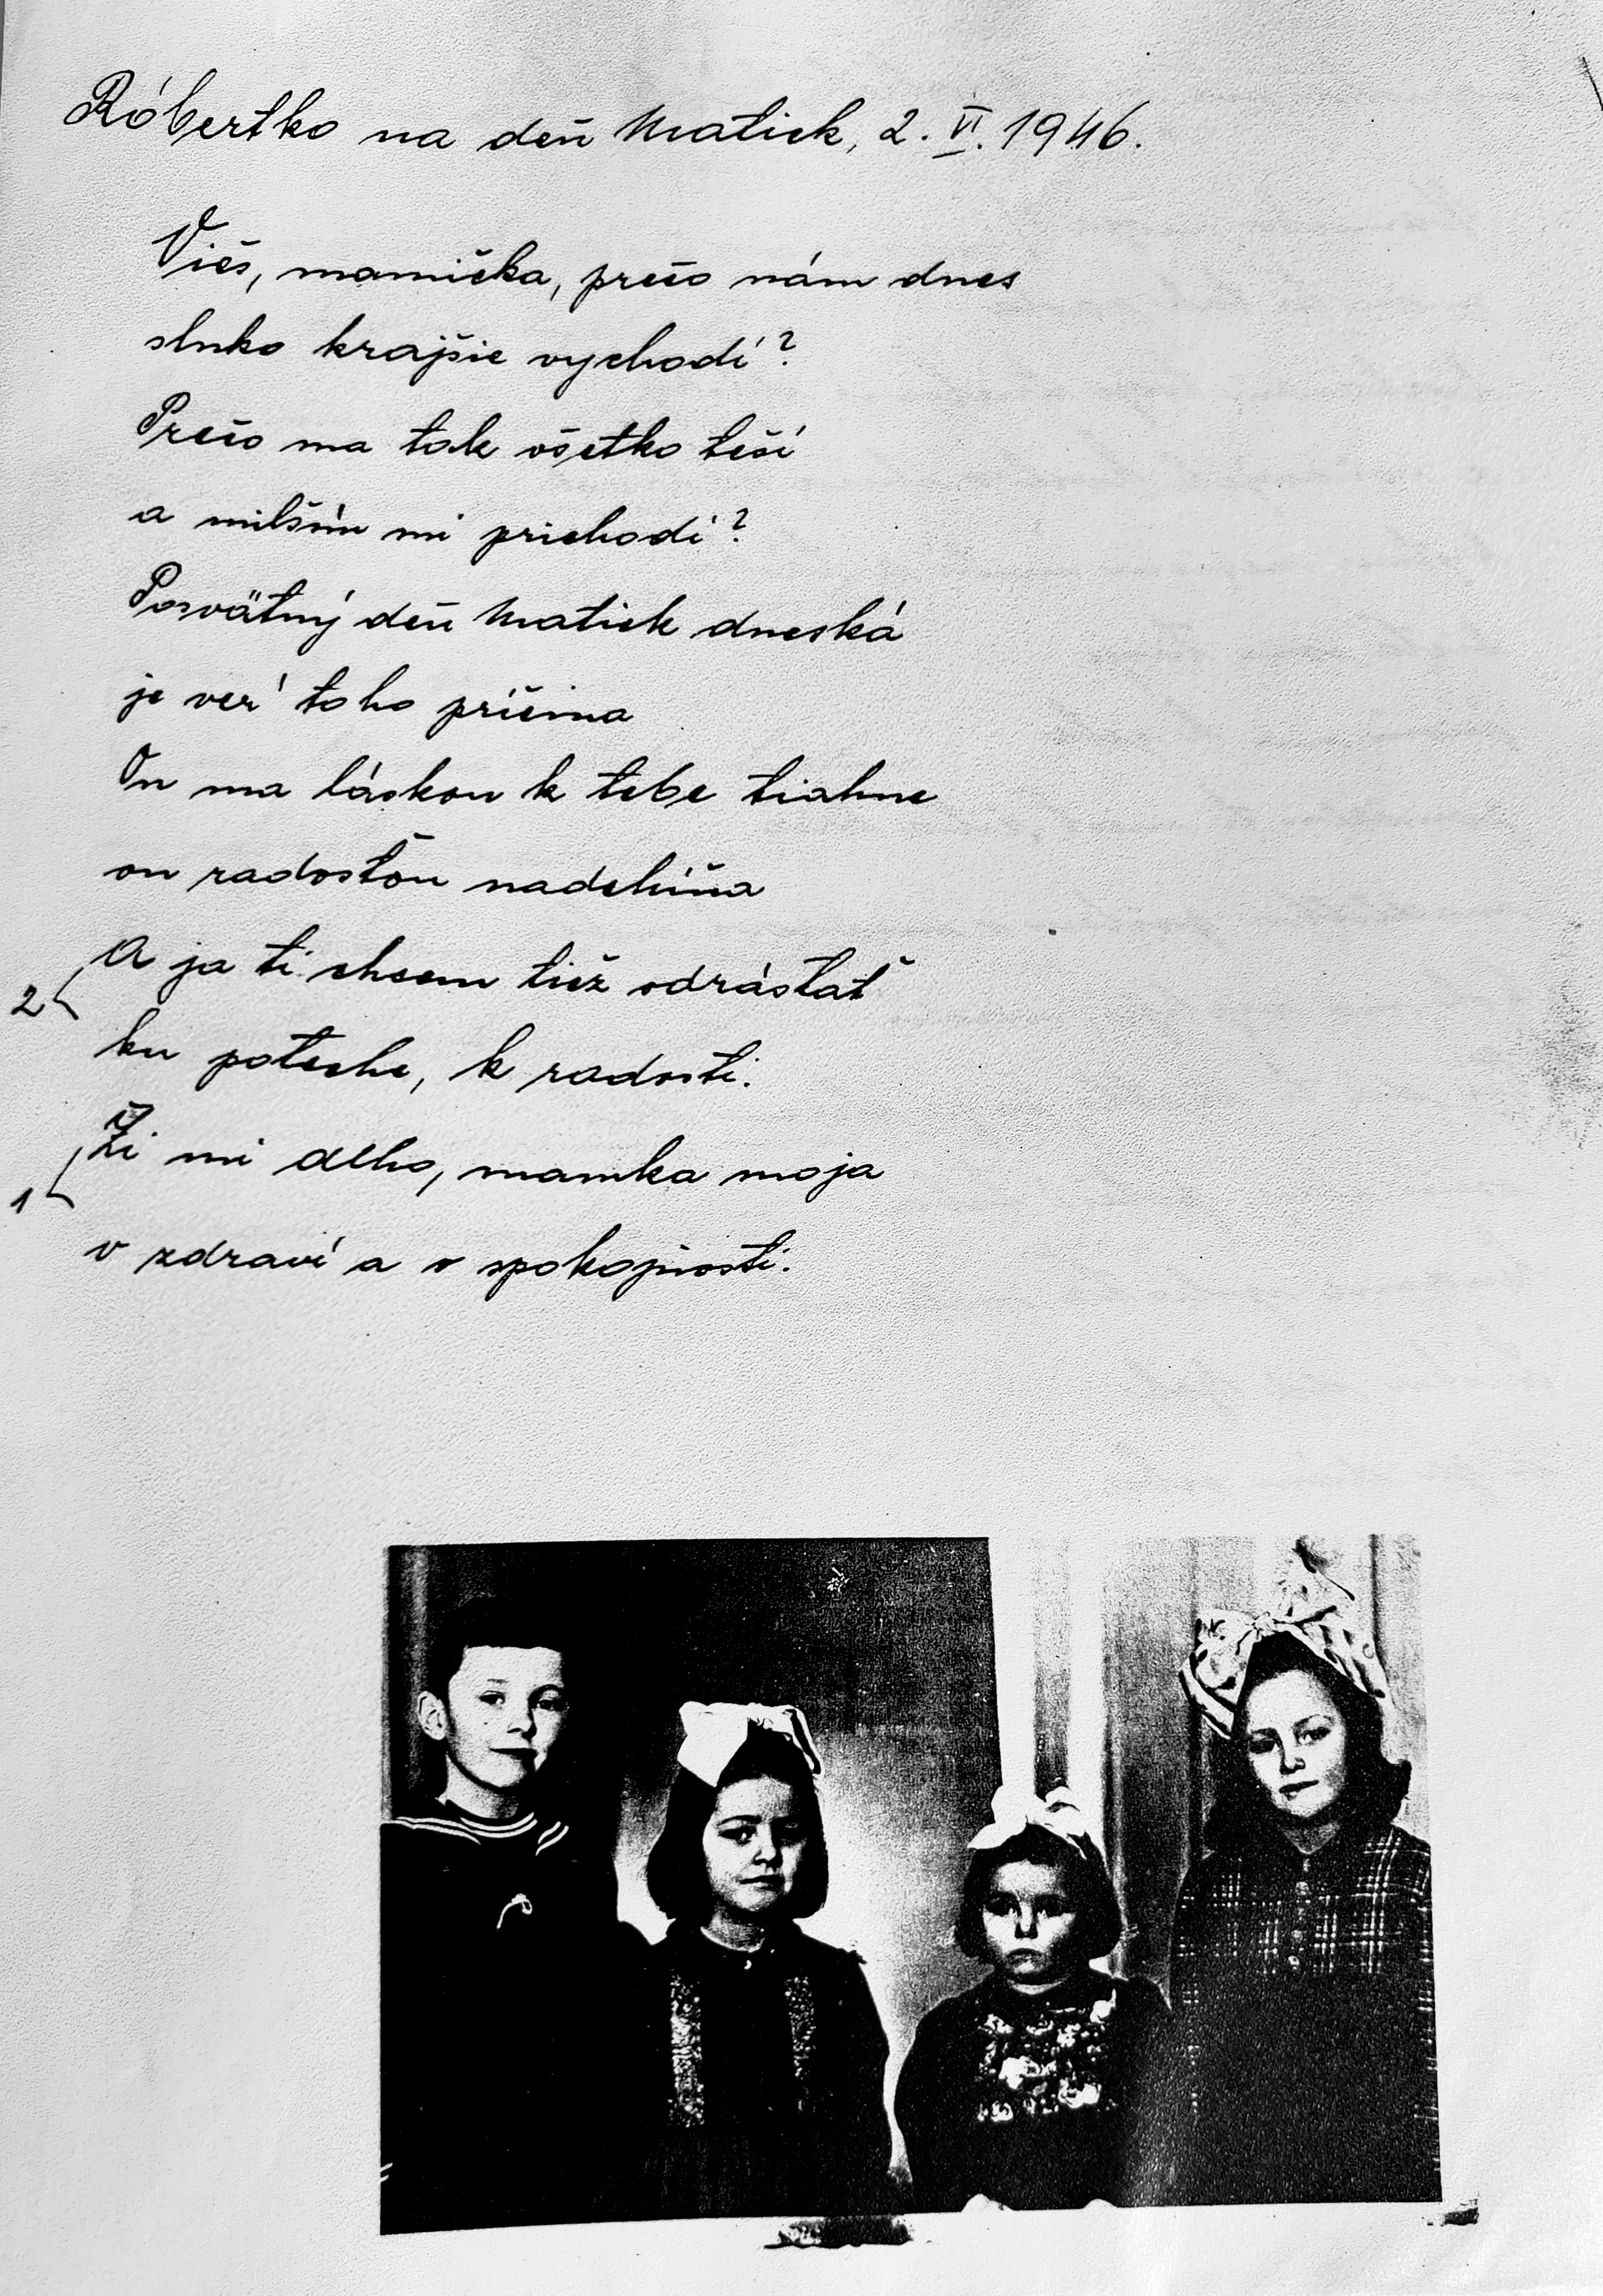 Róbertko na deň Matiek, 2. VI. 1946.
Vieš, mamička, prečo nám dnes
slnko krajšie vychodí?
Prečo ma tak všetko teší
a milším mi prichodí?
Posvätný deň Matiek dneská
je ver' toho príčina
On ma láskou k tebe tiahne
on radosťou nadchýňa
2 A ja ti chcem tiež odrástať
ku poteche, k radosti.
1 Ži mi dlho, mamka moja
v zdraví a v spokojnosti.